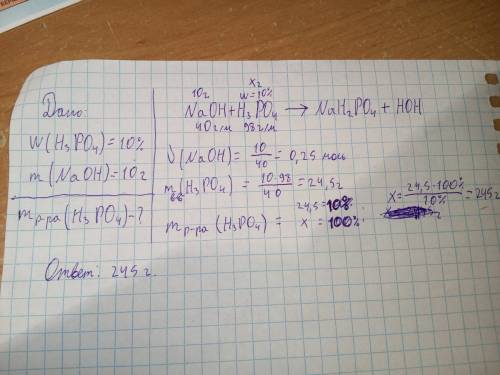 Дано:
W(H₃PO₄)=10%
m(NaOH)=10г
mр-ра(H₃PO₄)-?
10г xг
w=10%
NaOH+H₃PO₄ → NaH₂PO₄ + HOH
40г/м 98г/м
ν(NaOH)= 10/40 = 0,25 моль
mв-ва(H₃PO₄) = 10·98/40 = 24,5г
24,5=10%
mр-ра(H₃PO₄) = x = 100%
x= 24,5·100%/10% = 245г
Ответ: 245 г.